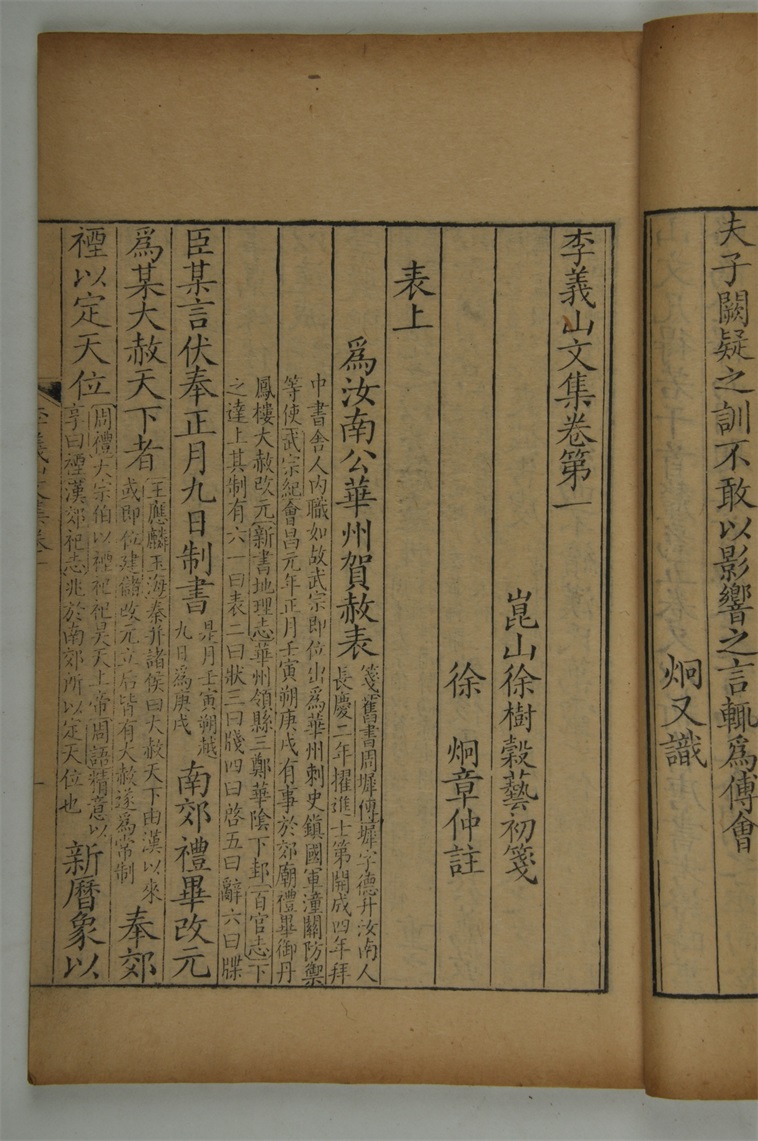 夫子闕疑之訓不敢以影響之言輒爲傅會
炯又識
李義山文集卷第一
崑山徐樹穀藝初箋
徐炯章仲註
表上
爲汝南公華州賀赦表
箋舊書周墀傳墀字德升汝南人
長慶二年擢進士第開成四年拜
中書舍人内職如故武宗即位出爲華州刺史鎮國軍潼關防禦
等使武宗紀會昌元年正月壬寅朔庚戌有事於郊廟禮畢御丹
鳳樓大赦改元新書地理志華州領縣三鄭華陰下邽百官志下
之達上其制有六一曰表二曰狀三曰牋四曰啓五曰辭六曰牒
臣某言伏奉正月九日制書
是月壬寅朔越
九日爲庚戌
南郊禮畢改元
爲某大赦天下者
王應麟玉海秦并諸侯曰大赦天下由漢以來
或即位建儲改元立后皆有大赦遂爲常制
奉郊
禋以定天位
周禮大宗伯以禋祀祀昊天上帝周語精意以
享曰禋漢郊祀志兆於南郊所以定天位也
新曆象以
李義山文集卷一
一